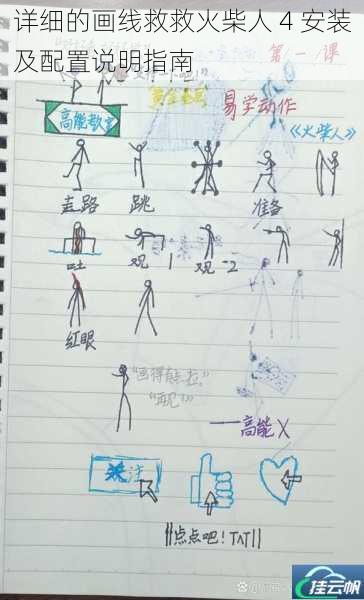 详细的画线救救火柴人 4 安装
及配置说明指南
第一课
高能教室
易学动作
《火柴人》
走路
跳
准备
吐
观-1
观-2
红眼
“画得有点拉。”
“再见”
——高能X
关注
||点点吧！TAT||
挂云帆